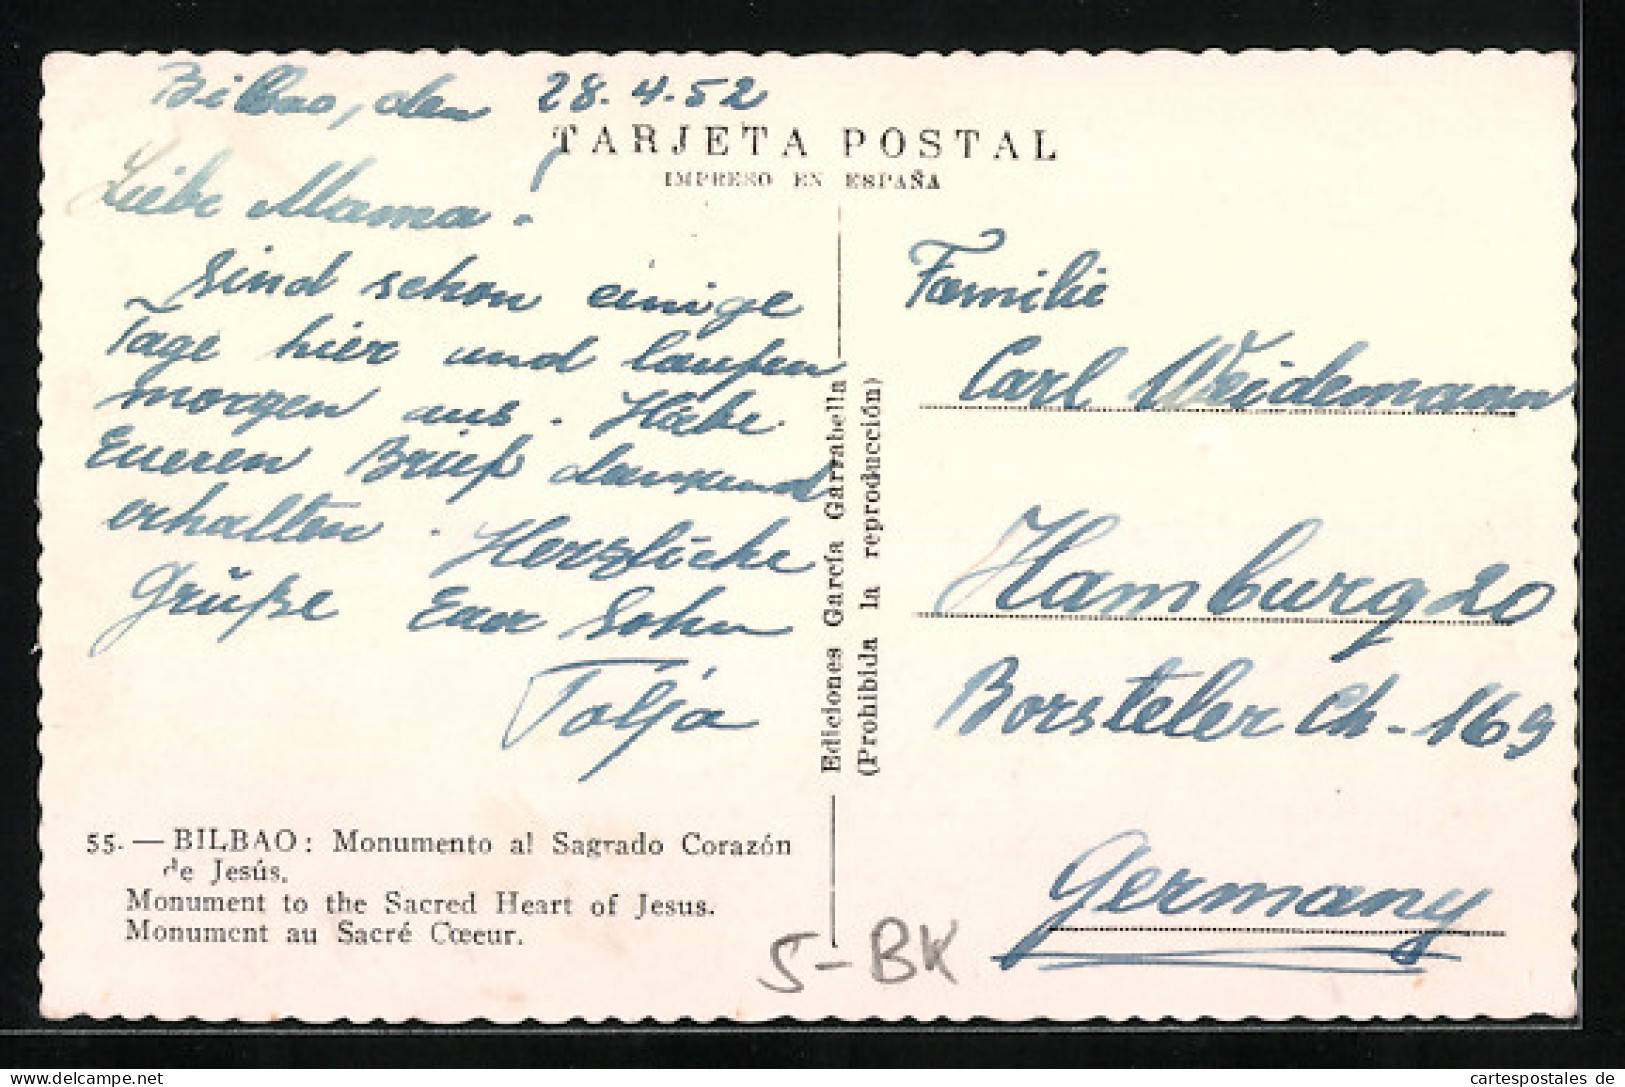 Bilbao, den 28.4.52
TARJETA POSTAL
IMPRESO EN ESPAÑA
Liebe Mama.
Sind schon einige
Tage hier und laufen
morgen aus. Habe
Eueren Brief dankend
erhalten. Herzliche
Grüße Euer Sohn
55. — BILBAO: Monumento al Sagrado Corazón
de Jesús.
Monument to the Sacred Heart of Jesus.
Monument au Sacré Cœeur.
Ediciones García Garrabella
(Prohibida la reproducción)
Familie
Carl Weidemann
Hamburg 20
Borsteler Ch-169
Germany
S-BK
Delcampe.net
cartespostales de